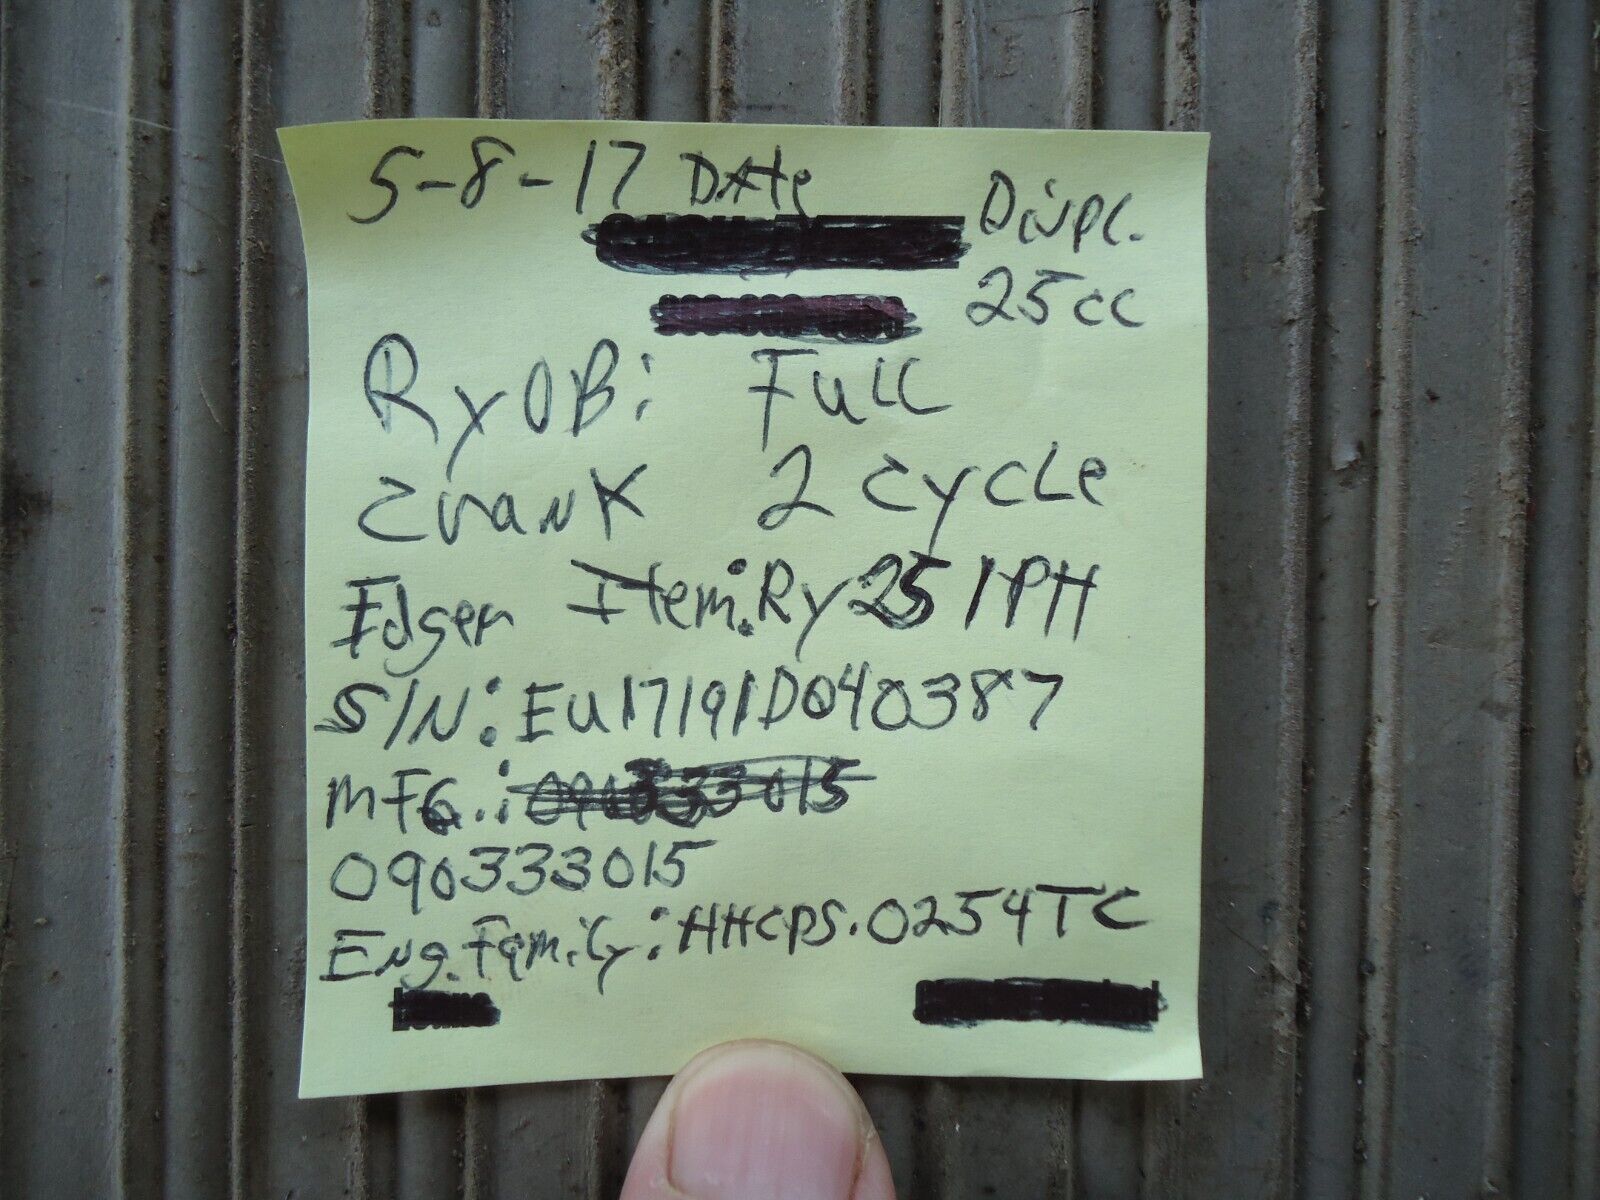 5-8-17 DAte
Displ.
25cc
RyOBi Full
crank 2 cycle
Edger Item: Ry251PH
S/N: EU17191D040387
MFG.:
090333015
Eng. Family: HHCPS.0254TC